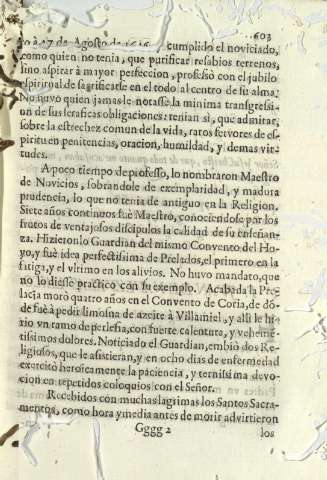 603
to à 17 de Agosto de 1616. cumplido el noviciado,
como quien no tenia, que purificar resabios terrenos,
sino aspirar à mayor perfeccion, professò con el jubilo
espiritual de sagrificarse en el todo al centro de su alma.
No huvo quien jamas le notasse la minima transgressi-
on de sus seraficas obligaciones: tenian si, que admirar,
sobre la estrechez comun de la vida, raros fervores de es-
piritu en penitencias, oracion, humildad, y demas vir-
tudes.
A poco tiempo de professo, lo nombraron Maestro
de Novicios, sobrandole de exemplaridad, y madura
prudencia, lo que no tenia de antiguo en la Religion.
Siete años continuos fuè Maestro, conociendose por los
frutos de ventajosos discipulos la calidad de su enseñan-
za. Hizieronlo Guardian del mismo Convento del Ho-
yo, y fuè idea perfectissima de Prelados, el primero en la
fatiga, y el vltimo en los alivios. No huvo mandato, que
no lo diesse practico con su exemplo. Acabada la Pre-
lacia morò quatro años en el Convento de Coria, de dõ-
de fuè à pedir limosna de azeite à Villamiel, y alli le hi-
riò vn ramo de perlesia, con fuerte calentura, y vehemẽ-
tissimos dolores. Noticiado el Guardian, embiò dos Re-
ligiosos, que le assistieran, y en ocho dias de enfermedad
exercitò heroicamente la paciencia, y ternissima devo-
cion en repetidos coloquios con el Señor.
Recebidos con muchas lagrimas los Santos Sacra-
mentos, como hora y media antes de morir advirtieron
Gggg 2 los